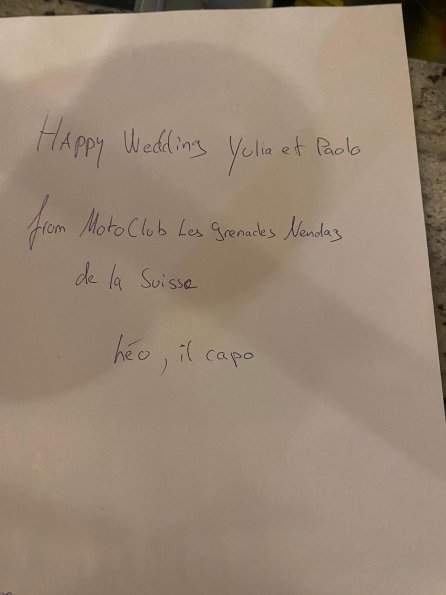 Happy Wedding Yulia et Paolo
from MotoClub Les grenades Nendaz
de la Suisse
Léo, il capo